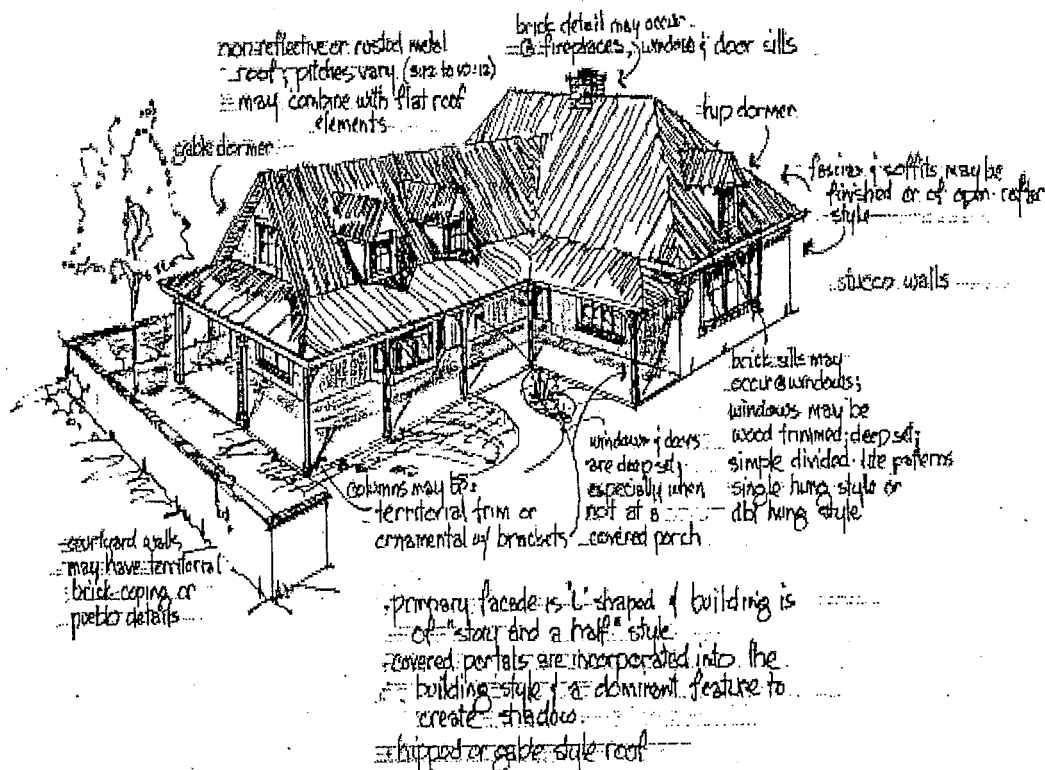 brick detail may occur
@ fireplaces, window & door sills
non-reflective or rusted metal
roof; pitches vary (5:12 to 10:12)
may combine with flat roof
elements
gable dormer
hip dormer
fascias & soffits may be
finished or of open rafter
style
stucco walls
brick sills may
occur @ windows;
windows may be
wood trimmed; deep set;
simple divided lite patterns
single hung style or
dbl hung style
windows & doors
are deep set;
especially when
not at a
covered porch
columns may be
territorial trim or
ornamental w/ brackets
courtyard walls
may have territorial
brick coping or
pueblo details
primary facade is "L" shaped & building is
of "story and a half" style
covered portals are incorporated into the
building style & a dominant feature to
create shadow.
hipped or gable style roof